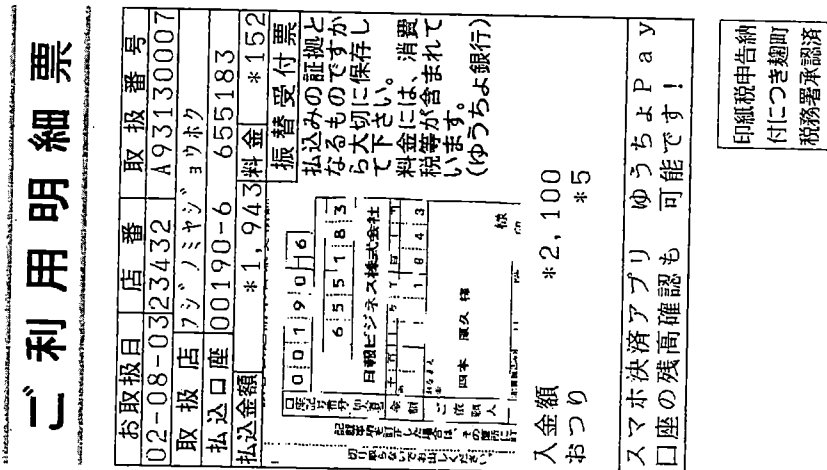 ご利用明細票
お取扱日 店番 取扱番号
02-08-03 23432 A93130007
取扱店 フジノミヤジョウホク
払込口座 00190-6 655183
払込金額 *1,943 料金 *152
振替受付票
払込みの証拠と
なるものですか
ら大切に保存し
て下さい。
料金には、消費
税等が含まれて
います。
(ゆうちょ銀行)
00190 6
655183
日報ビジネス株式会社
金額
ご依頼人
様
切り取らないでお出しください。
入金額 *2,100
おつり *5
スマホ決済アプリ ゆうちょPay
口座の残高確認も 可能です!
印紙税申告納
付につき麹町
税務署承認済